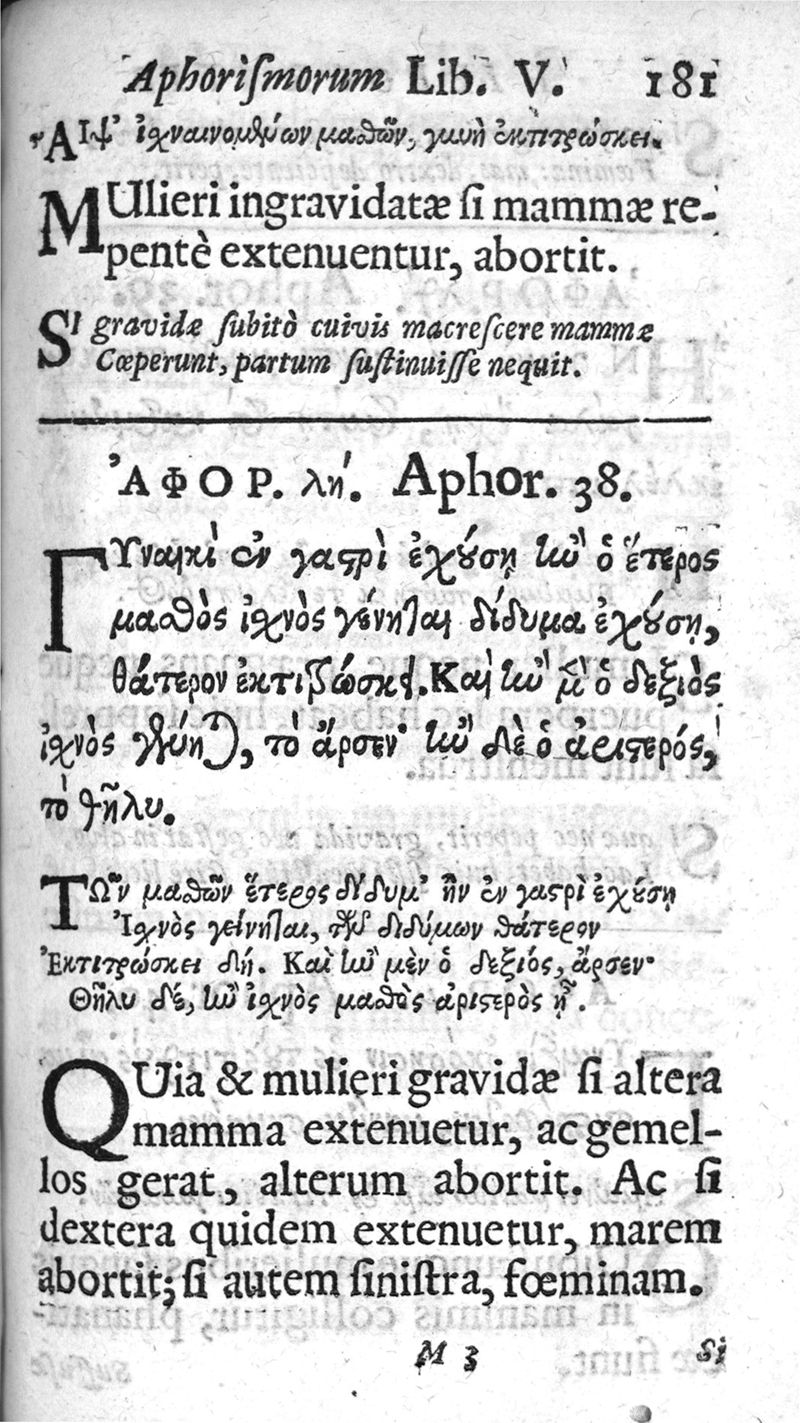 Aphoriſmorum Lib. V. 181
ΑΙψ’ ἰχναινομένων μαθῶν, γυνὴ ἐκτιτρώσκει.
MUlieri ingravidatæ ſi mammæ re-
pentè extenuentur, abortit.
SI gravidæ ſubitò cuivis macreſcere mammæ
Cœperunt, partum ſuſtinuiſſe nequit.
ἈΦΟΡ. λή. Aphor. 38.
ΓΥναικὶ ἐν γαστρὶ ἐχούσῃ ἢν ὁ ἕτερος
μαθὸς ἰχνὸς γένηται δίδυμα ἐχούσῃ,
θάτερον ἐκτιτρώσκει. Καὶ ἢν μὲν ὁ δεξιὸς
ἰχνὸς γένηται, τὸ ἄρσεν· ἢν δὲ ὁ ἀριστερός,
τὸ θῆλυ.
ΤΩν μαθῶν ἕτερος δίδυμ’ ἢν ἐν γαστρὶ ἐχούσῃ
Ἰχνὸς γείνηται, τῶν διδύμων θάτερον
Ἐκτιτρώσκει δή. Καὶ ἢν μὲν ὁ δεξιός, ἄρσεν·
Θῆλυ δέ, ἢν ἰχνὸς μαθὸς ἀριστερὸς ᾖ.
QUia & mulieri gravidæ ſi altera
mamma extenuetur, ac gemel-
los gerat, alterum abortit. Ac ſi
dextera quidem extenuetur, marem
abortit; ſi autem ſiniſtra, fœminam.
M 3 Si